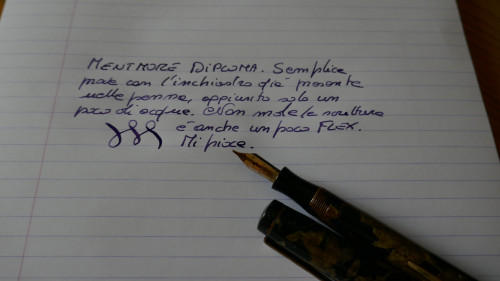 MENTMORE DIPLOMA. Semplice
prova con l'inchiostro già presente
nella penna, aggiunto solo un
poco di acqua. Non male la scrittura
è anche un poco FLEX.
Mi piace.